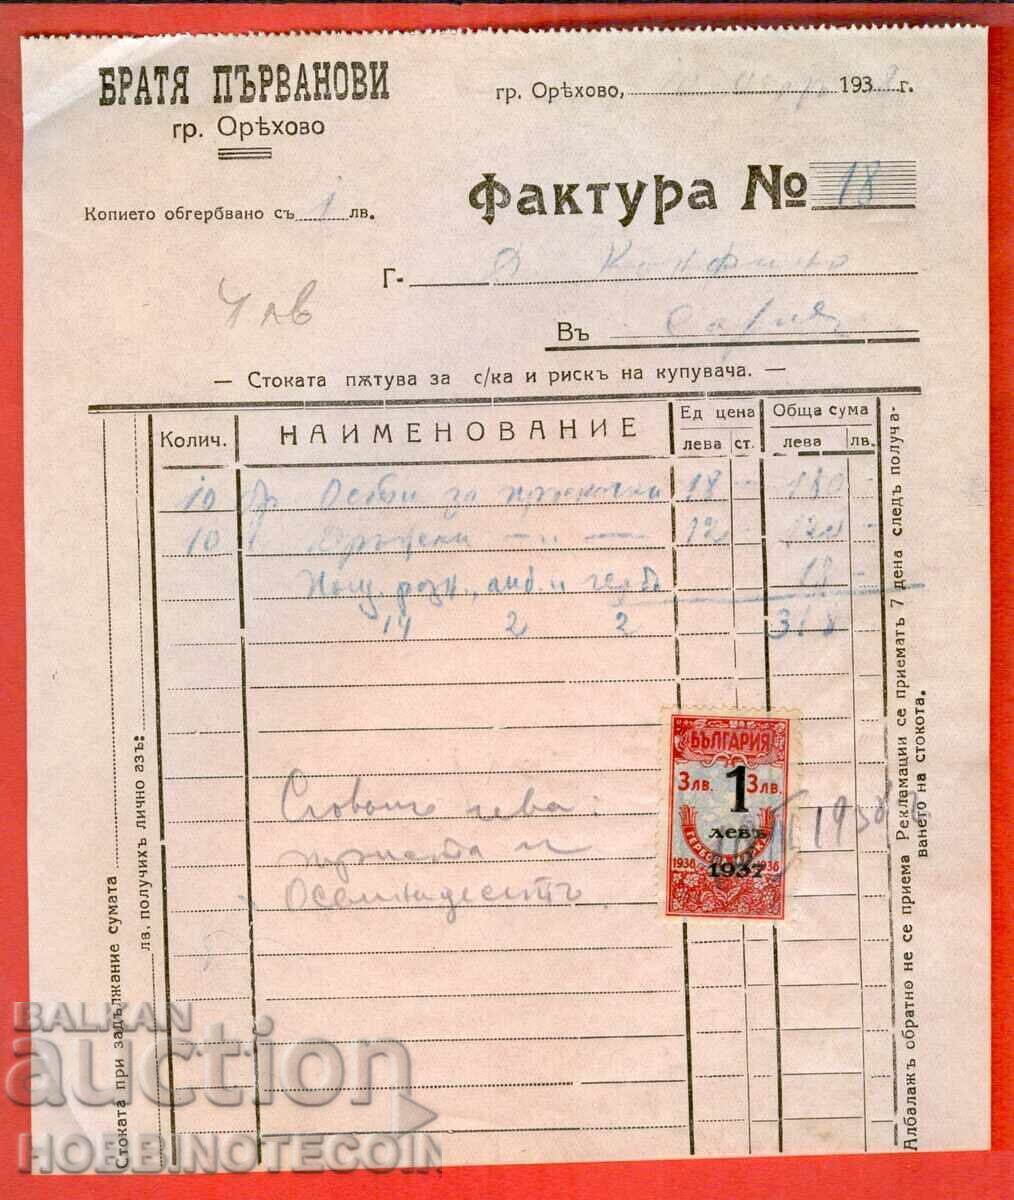 БРАТЯ ПЪРВАНОВИ
гр. Орѣхово
гр. Орѣхово, 1938 г.
Копието обгербвано съ 1 лв.
Фактура № 18
4 лв
Г-
Въ София
— Стоката пѫтува за с/ка и рискъ на купувача. —
Колич. НАИМЕНОВАНИЕ Ед цена Обща сума
лева ст. лева лв.
10 за 18 - 180 -
10 Дръжки — „ — 12 - 120 -
18 -
14 2 2 318
Словомъ лева:
триста и
осемнадесеть.
БЪЛГАРИЯ
3 лв. 1 3 лв.
левъ
ГЕРБОВА МАРКА
1936 1937 1936
1938
Стоката при задължание сумата
лв. получихъ лично азъ:
Албалажъ обратно не се приема Рекламации се приематъ 7 дена следъ получа-
ването на стоката.
BALKAN
auction
HOBBINOTECOIN